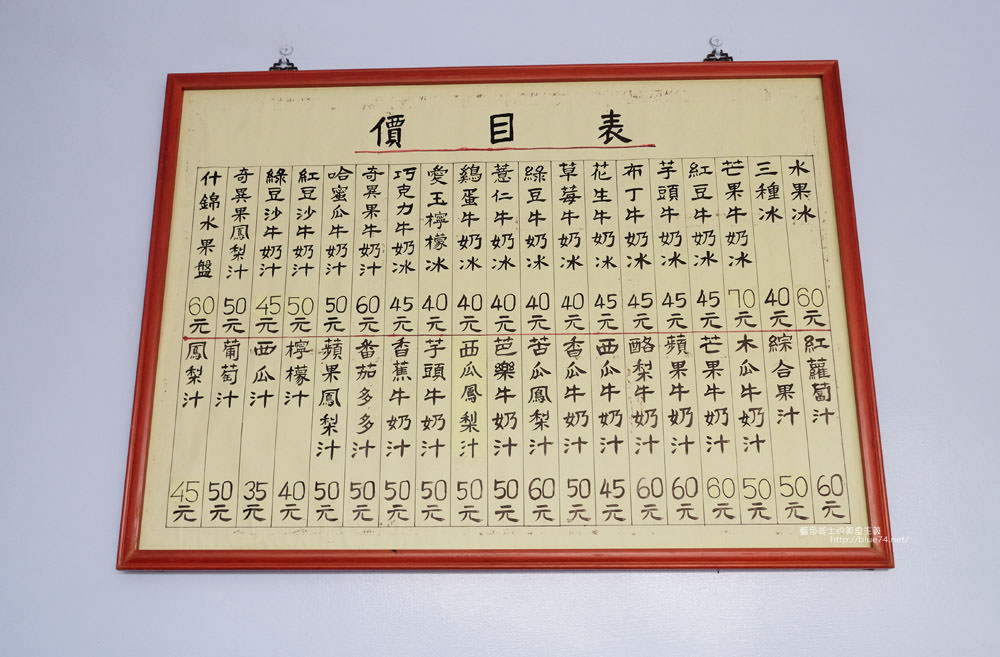 價目表
水果冰 60元
三種冰 40元
芒果牛奶冰 70元
紅豆牛奶冰 45元
芋頭牛奶冰 45元
布丁牛奶冰 45元
花生牛奶冰 45元
草莓牛奶冰 40元
綠豆牛奶冰 40元
薏仁牛奶冰 40元
鷄蛋牛奶冰 40元
愛玉檸檬冰 40元
巧克力牛奶冰 45元
奇異果牛奶汁 60元
哈蜜瓜牛奶汁 50元
紅豆沙牛奶汁 50元
綠豆沙牛奶汁 45元
奇異果鳳梨汁 50元
什錦水果盤 60元
紅蘿蔔汁 60元
綜合果汁 50元
木瓜牛奶汁 50元
芒果牛奶汁 60元
蘋果牛奶汁 60元
酪梨牛奶汁 60元
西瓜牛奶汁 45元
香瓜牛奶汁 50元
苦瓜鳳梨汁 60元
芭樂牛奶汁 50元
西瓜鳳梨汁 50元
芋頭牛奶汁 50元
香蕉牛奶汁 50元
番茄多多汁 50元
蘋果鳳梨汁 50元
檸檬汁 40元
西瓜汁 35元
葡萄汁 50元
鳳梨汁 45元
http://blue74.net/